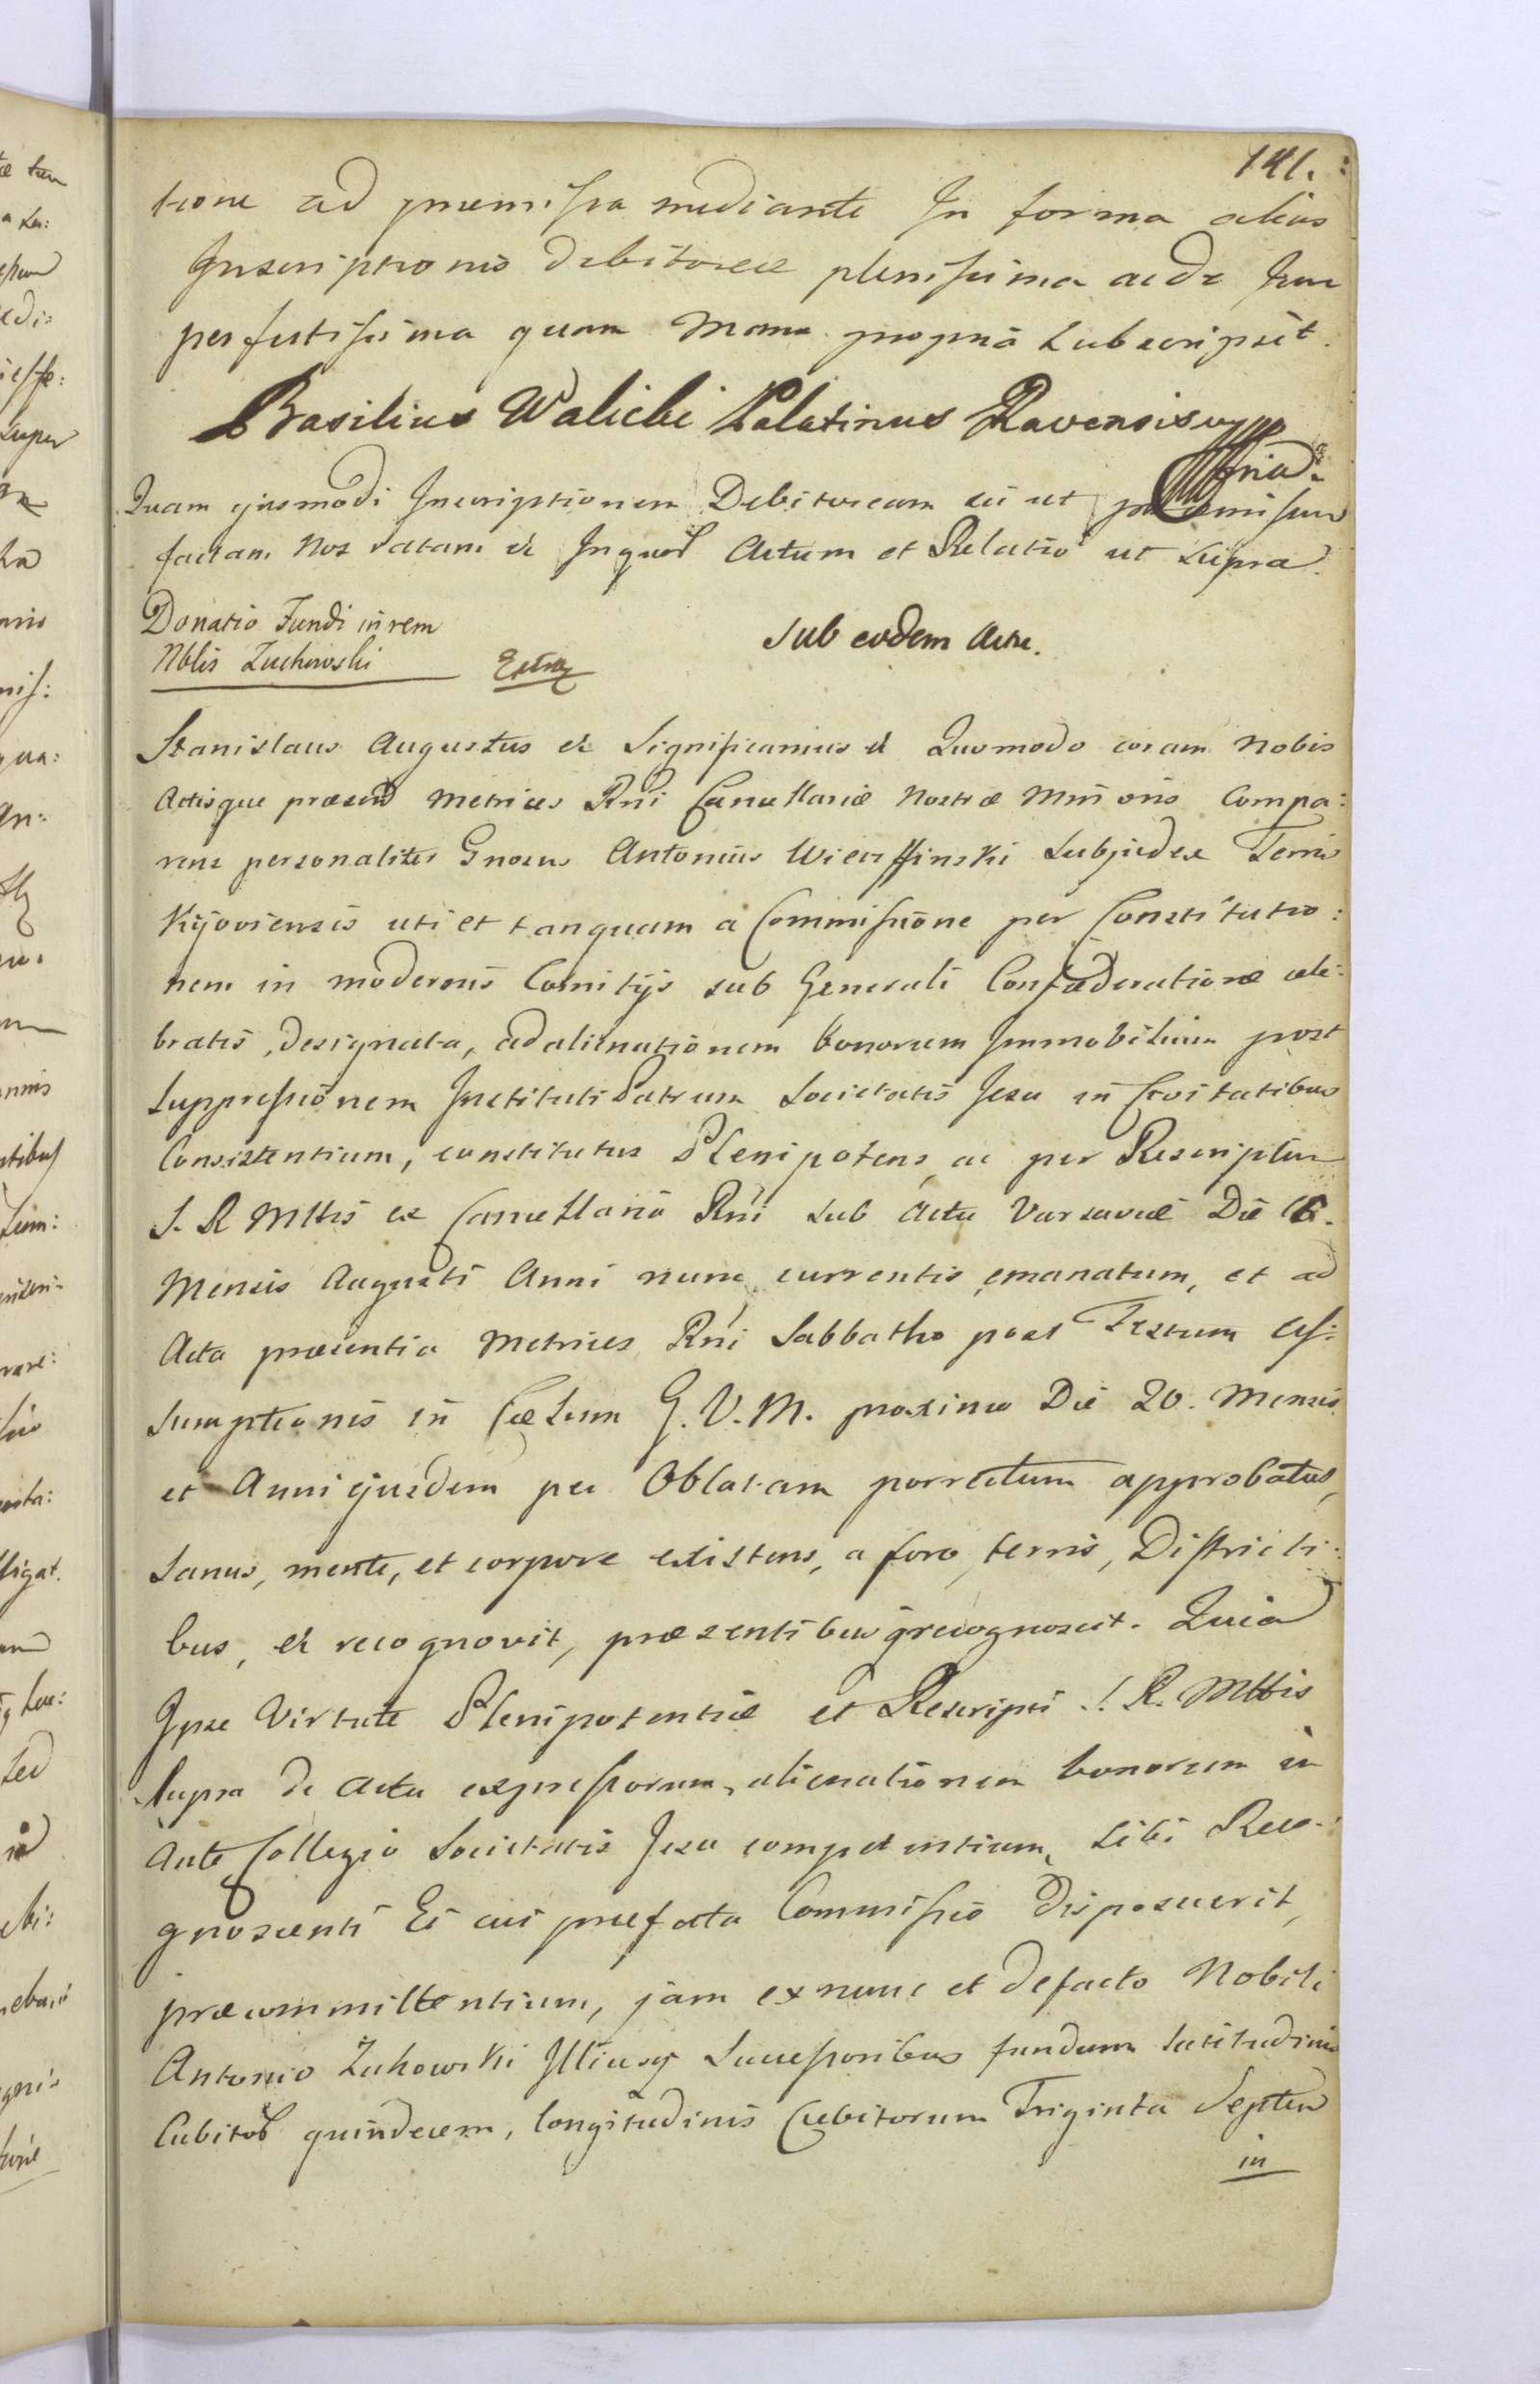 141.
tione ad præmissa mediante In forma alias
Inscriptionis debitoreæ plenissima ac de Jure
perfectissima quam Manu propria Subscripsit.
Basilius Walicki Palatinus Ravensis
Quam ejusmodi Inscriptionem Debitoream sic ut præmissum
factam Nos ratam et Inquor Actum et Relatio ut Supra.
Donatio Fundi in rem
Nblis Zuchowski
Sub eodem Actu.
Stanislaus Augustus et Significamus et Quomodo coram Nobis
Actisque præsend Metrices Rni Cancellariæ Nostræ Min oris Compa:
rens personaliter Gnosus Antonius Wierffinski Subjudex Terræ
Kijoviensis uti et tanquam a Commissione per Constitutio:
nem in modernis Comitijs sub Generali Confæderatione cele:
bratis, designata, ad alienationem bonorum Immobilium post
Suppressionem Instituti Patrum Societatis Jesu in Civitatibus
Consistentium, constitutus Plenipotens, ac per Rescriptum
S. R Mttis ex Cancellaria Rni sub Actu Varsaviæ Die 16.
Mensis Augusti Anni nunc currentis, emanatum, et ad
Acta præsentia Metrices Rni Sabbatho post Festum As:
sumptionis in Cælum G. V. M. proximo Die 20. Mensis
et Anni ejusdem per Oblatam porrectum approbatus,
Sanus, mente, et corpore existens, a foro, terris, Districti:
bus, et recognovit, præsentibusq recognoscit. Quia
Ipse Virtute Plenipotentiæ et Rescripti S. R. Mttis
Supra de Actu expressorum, alienationem bonorum in
Ante Collegio Societatis Jesu competentium, Sibi Reco:
gnoscenti Ei cui præfata Commissio disposuerit,
præcommittentium, jam ex nunc et defacto Nobili
Antonio Zukowski Illiusq Successoribus fundum latitudinis
Cubitor quindecem, longitudinis Cubitorum Triginta Septem
in